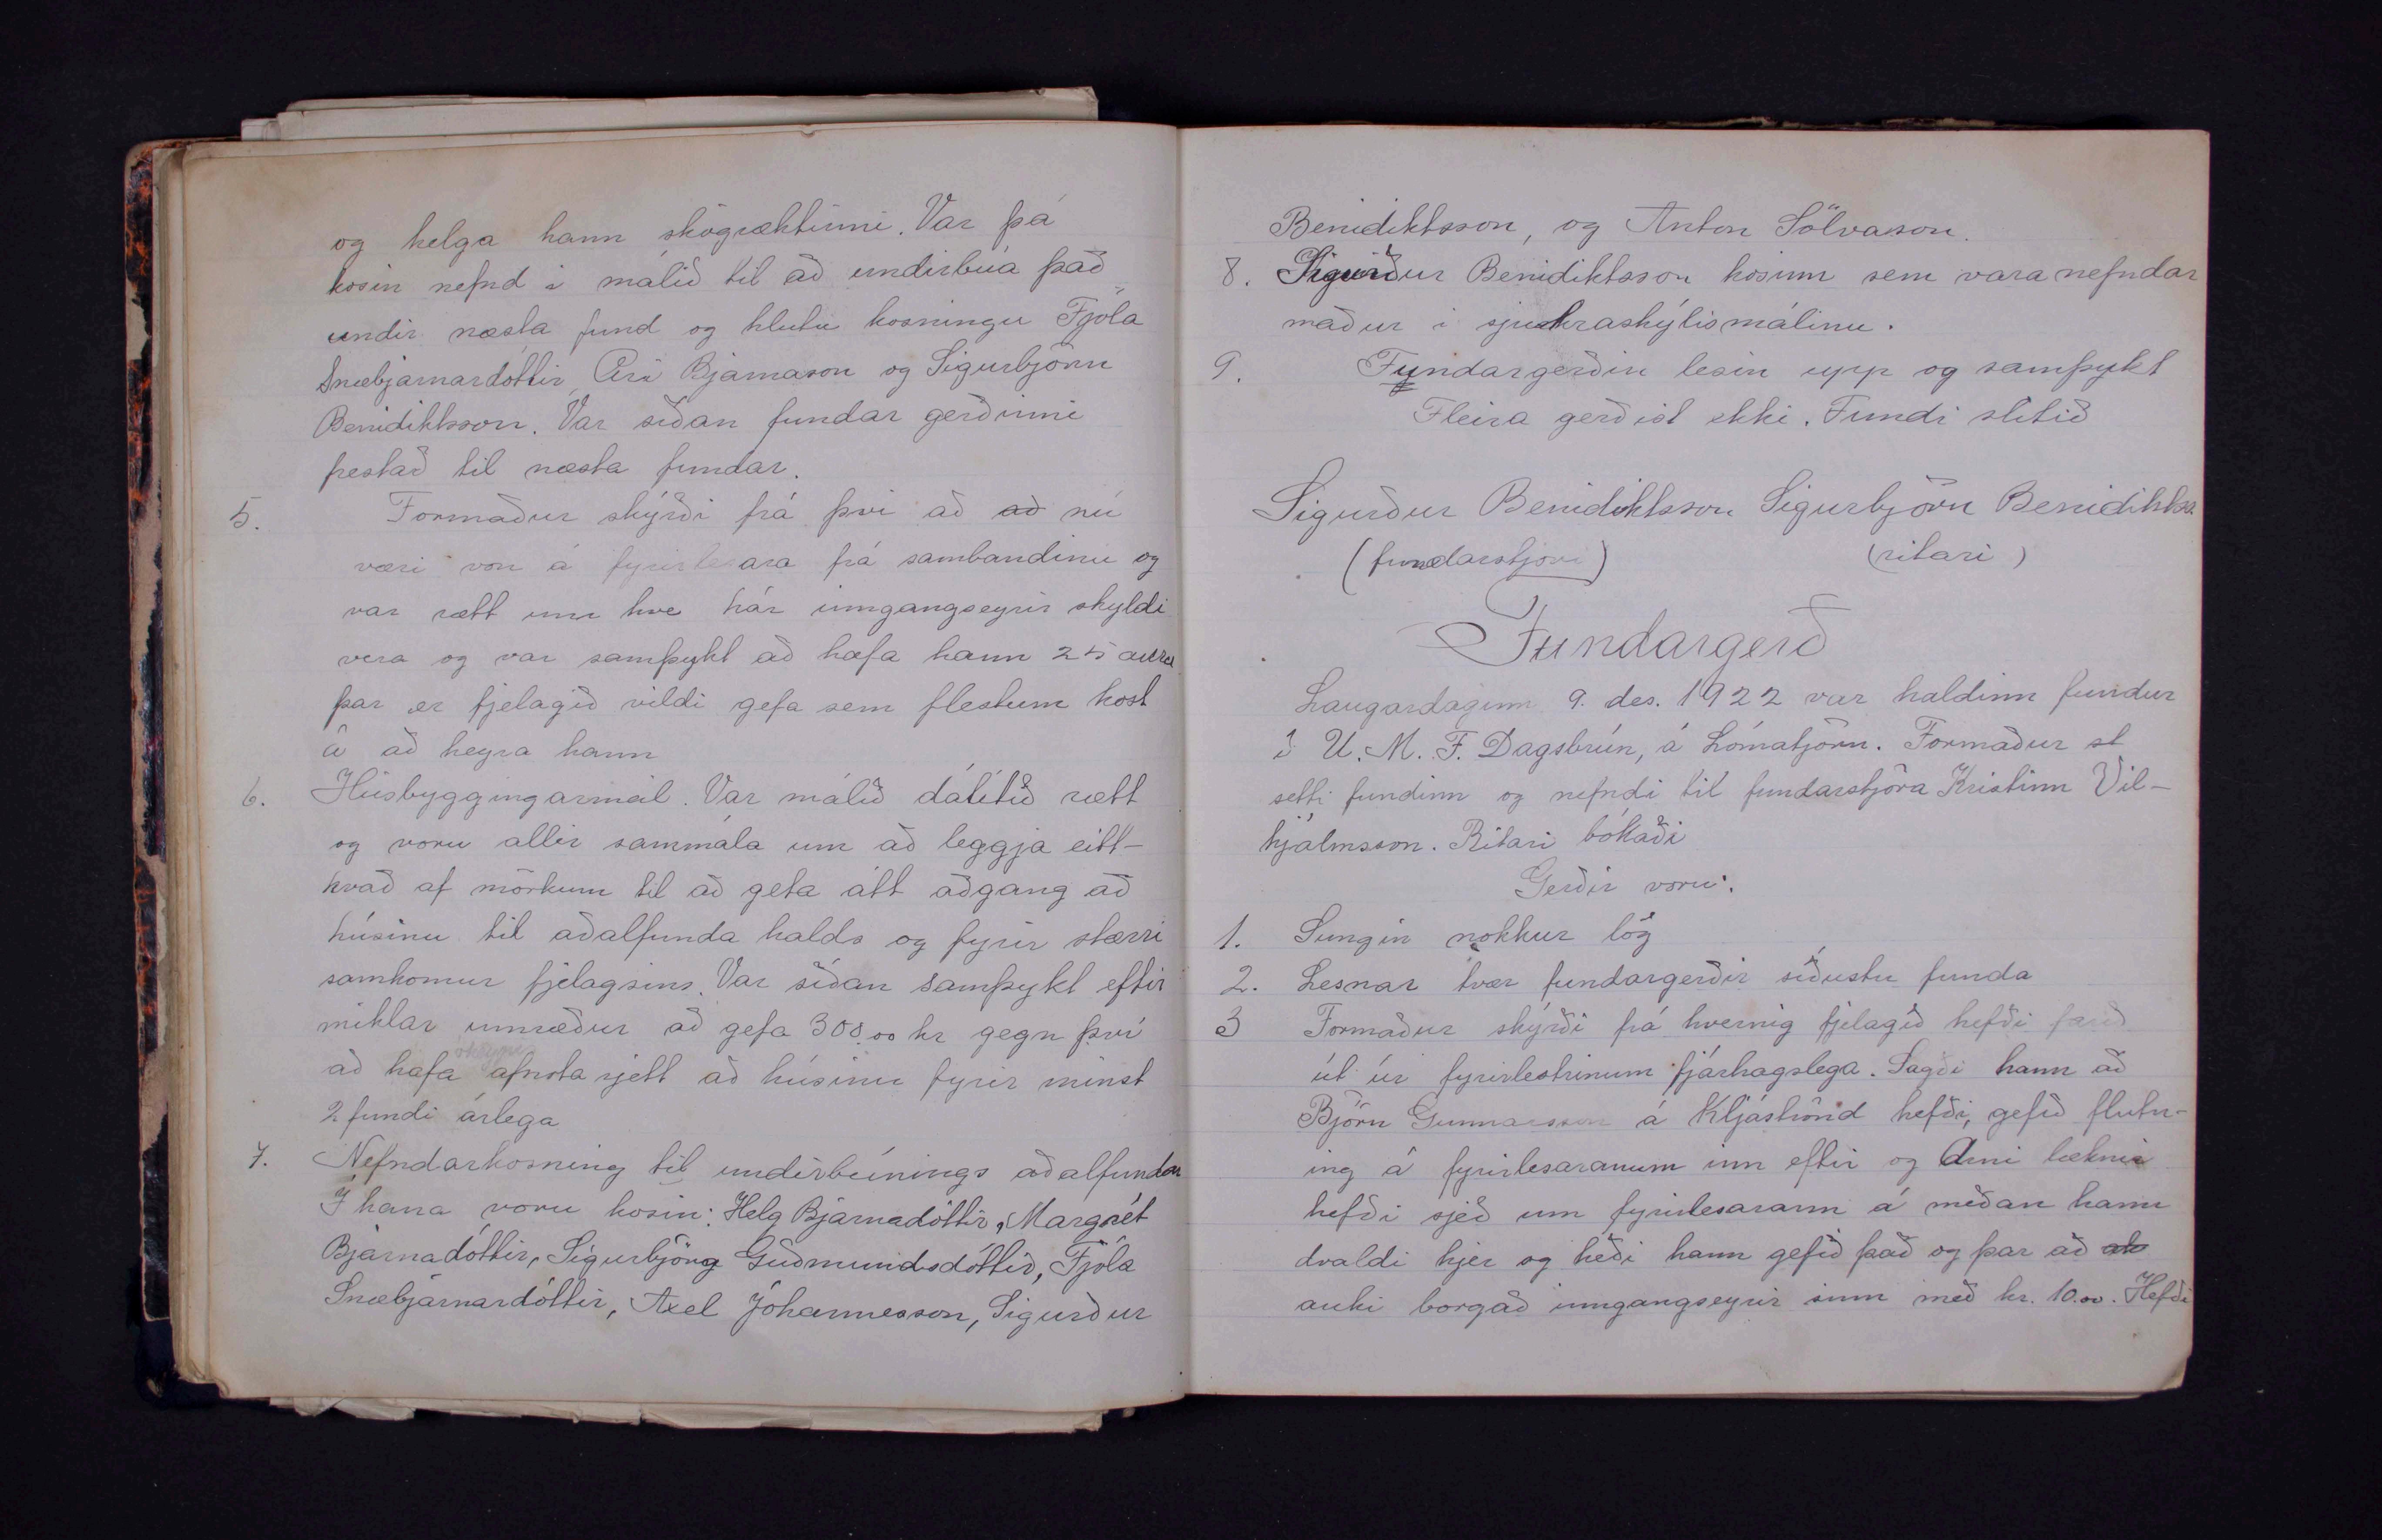 og helga hann skógræktinni. Var þá
kosin nefnd í málið til að undirbúa það
undir næsta fund og hlutu kosningu Fjóla
Snæbjarnardóttir Ari Bjarnason og Sigurbjörn
Benidiktsson. Var síðan fundar gerðinni
frestað til næsta fundar.
5. Formaður skýrði frá því að að nú
væri von á fyrirlesara frá sambandinu og
var rætt um hve hár inngangseyrir skyldi
vera og var samþykt að hafa hann 25 aura
þar er fjelagið vildi gefa sem flestum kost
á að heyra hann
6. Húsbyggingarmál. Var málið dálítið rætt
og voru allir sammála um að leggja eitt-
hvað af mörkum til að geta átt aðgang að
húsinu til aðalfunda halds og fyrir stærri
samkomur fjelagsins. Var síðan samþykt eftir
miklar umræður að gefa 300.00 kr gegn því
að hafa afnota rjett að húsinu fyrir minst
2 fundi árlega
7. Nefndarkosning til undirbúnings aðalfundar
Í hana voru kosin: Helg Bjarnadóttir, Margrét
Bjarnadóttir, Sigurbjörg Guðmundsdóttir, Fjóla
Snæbjarnardóttir, Axel Jóhannesson, Sigurður
Benidiktsson, og Anton Sölvason.
8. Sigurður Benidiktsson kosinn sem vara nefndar
maður í sjúkraskýlismálinu.
9. Fundargerðin lesin upp og samþykt
Fleira gerðist ekki. Fundi slitið
Sigurður Benidiktsson Sigurbjörn Benidiktss
(fundarstjóri) (ritari)
Fundargerð
Laugardaginn 9. des. 1922 var haldinn fundur
í U. M. F. Dagsbrún, á Lómatjörn. Formaður st
setti fundinn og nefndi til fundarstjóra Kristinn Vil-
hjálmsson. Ritari bókaði
Gerðir voru:
1. Sungin nokkur lög
2. Lesnar tvær fundargerðir síðustu funda
3 Formaður skýrði frá hvernig fjelagið hefði farið
út úr fyrirlestrinum fjárhagslega. Sagði hann að
Björn Gunnarsson á Kljáströnd hefði, gefið flutn-
ing á fyrirlesaranum inn eftir og Árni læknir
hefði sjeð um fyrirlesarann á meðan hann
dvaldi hjer og heði hann gefið það og þar að ak
auki borgað inngangseyrir sinn með kr. 10.00. Hefði